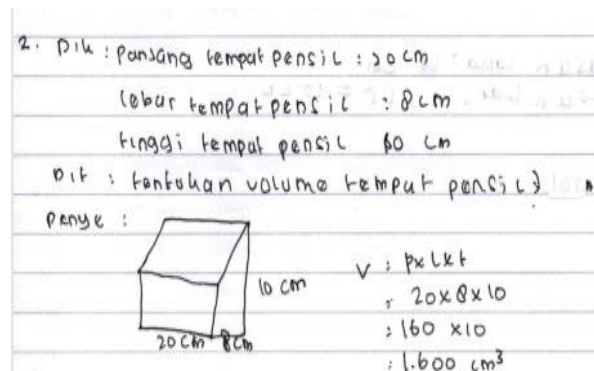 2. Dik : panjang tempat pensil : 20 cm
lebar tempat pensil : 8 cm
tinggi tempat pensil 10 cm
Dit : tentukan volume tempat pensil?
penye :
10 cm
20 cm 8 cm
V : p x l x t
: 20 x 8 x 10
: 160 x 10
: 1.600 cm³